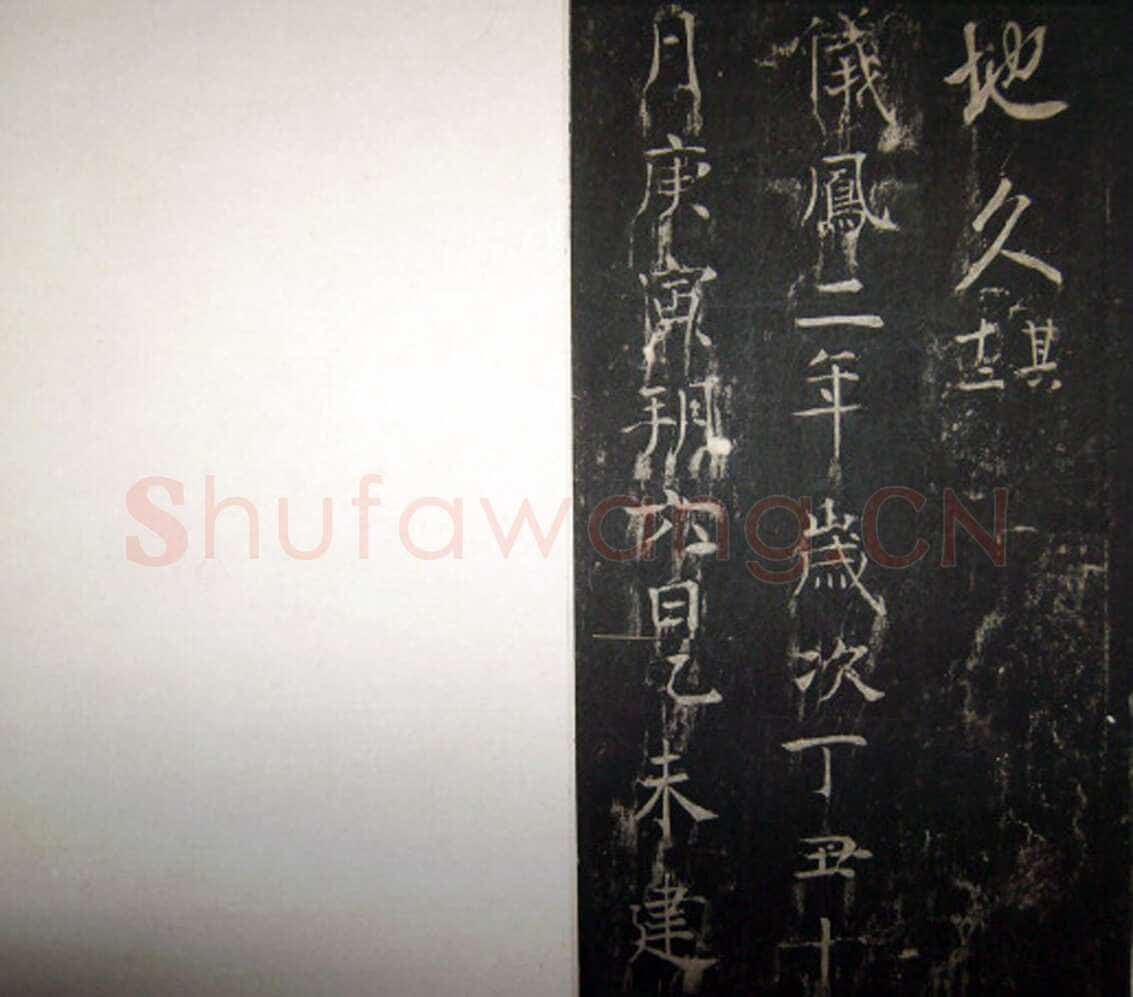 地久其十二
儀鳳二年歲次丁丑十
月庚寅朔六日乙未建
Shufawang.CN